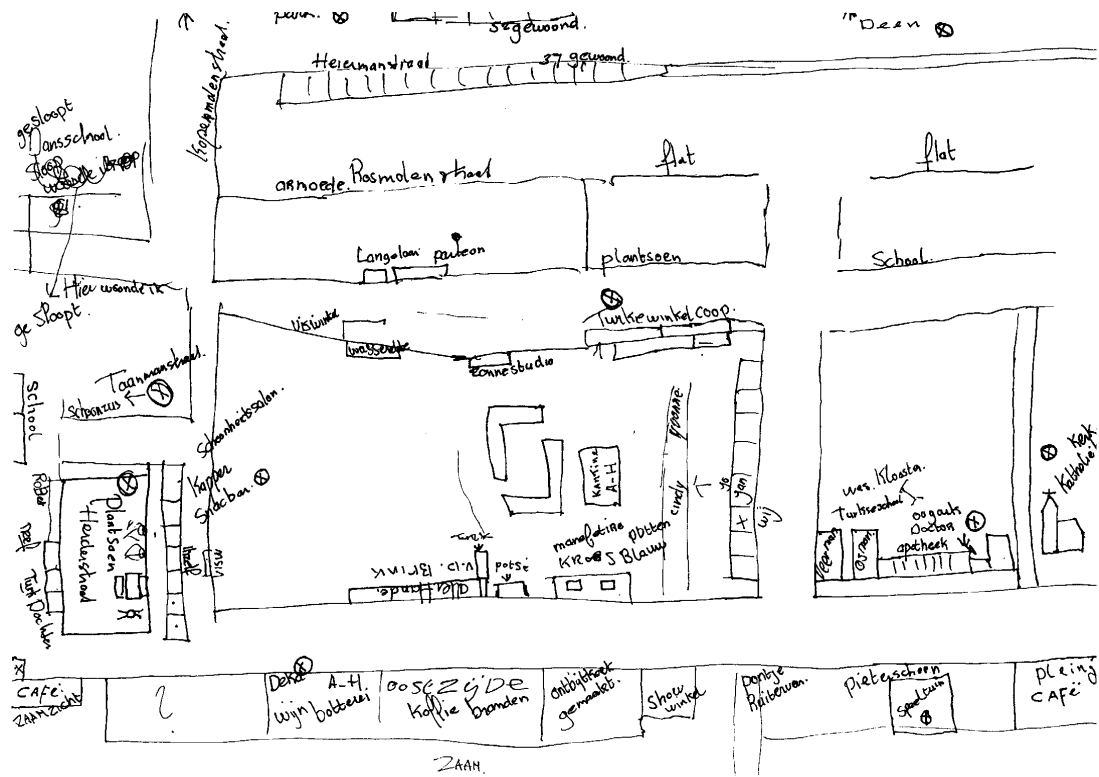 Park.
5e gewoond.
"Deen
Heiermanstraat
37 gewoond
Kopermolenstraat
gesloopt
Dansschool.
Sloop
woonde
armoede. Rosmolenstraat
flat
flat
Langelaan
plantsoen
School.
Hier woonde ik
gesloopt.
Viswinkel
wasserette
Zonnestudio
Turksewinkel coop.
Taanmanstraat.
Schoonzus
School
Schoonheitssalon.
Kapper
Snacbar.
Plantsoen
Herderstraat
Neef
vism
Kantine
A-H
yvonne
cindy
jan
wij
manafetire potten
KROES Blauw
V.D. BRINK
was Klooster
Turkseschool
oogarts
Doctor
apotheek
Veerman
Kerk
Katholiek
CAFé
ZAANZICHT
?
Deka
wijn
A-H
botterei
OOSTZijDe
Koffie branden
ontbijtkoek
gemaakt.
Show
winkel
Pontje
Pieterscheen
Speeltuin
pleing
CAFé
ZAAN.